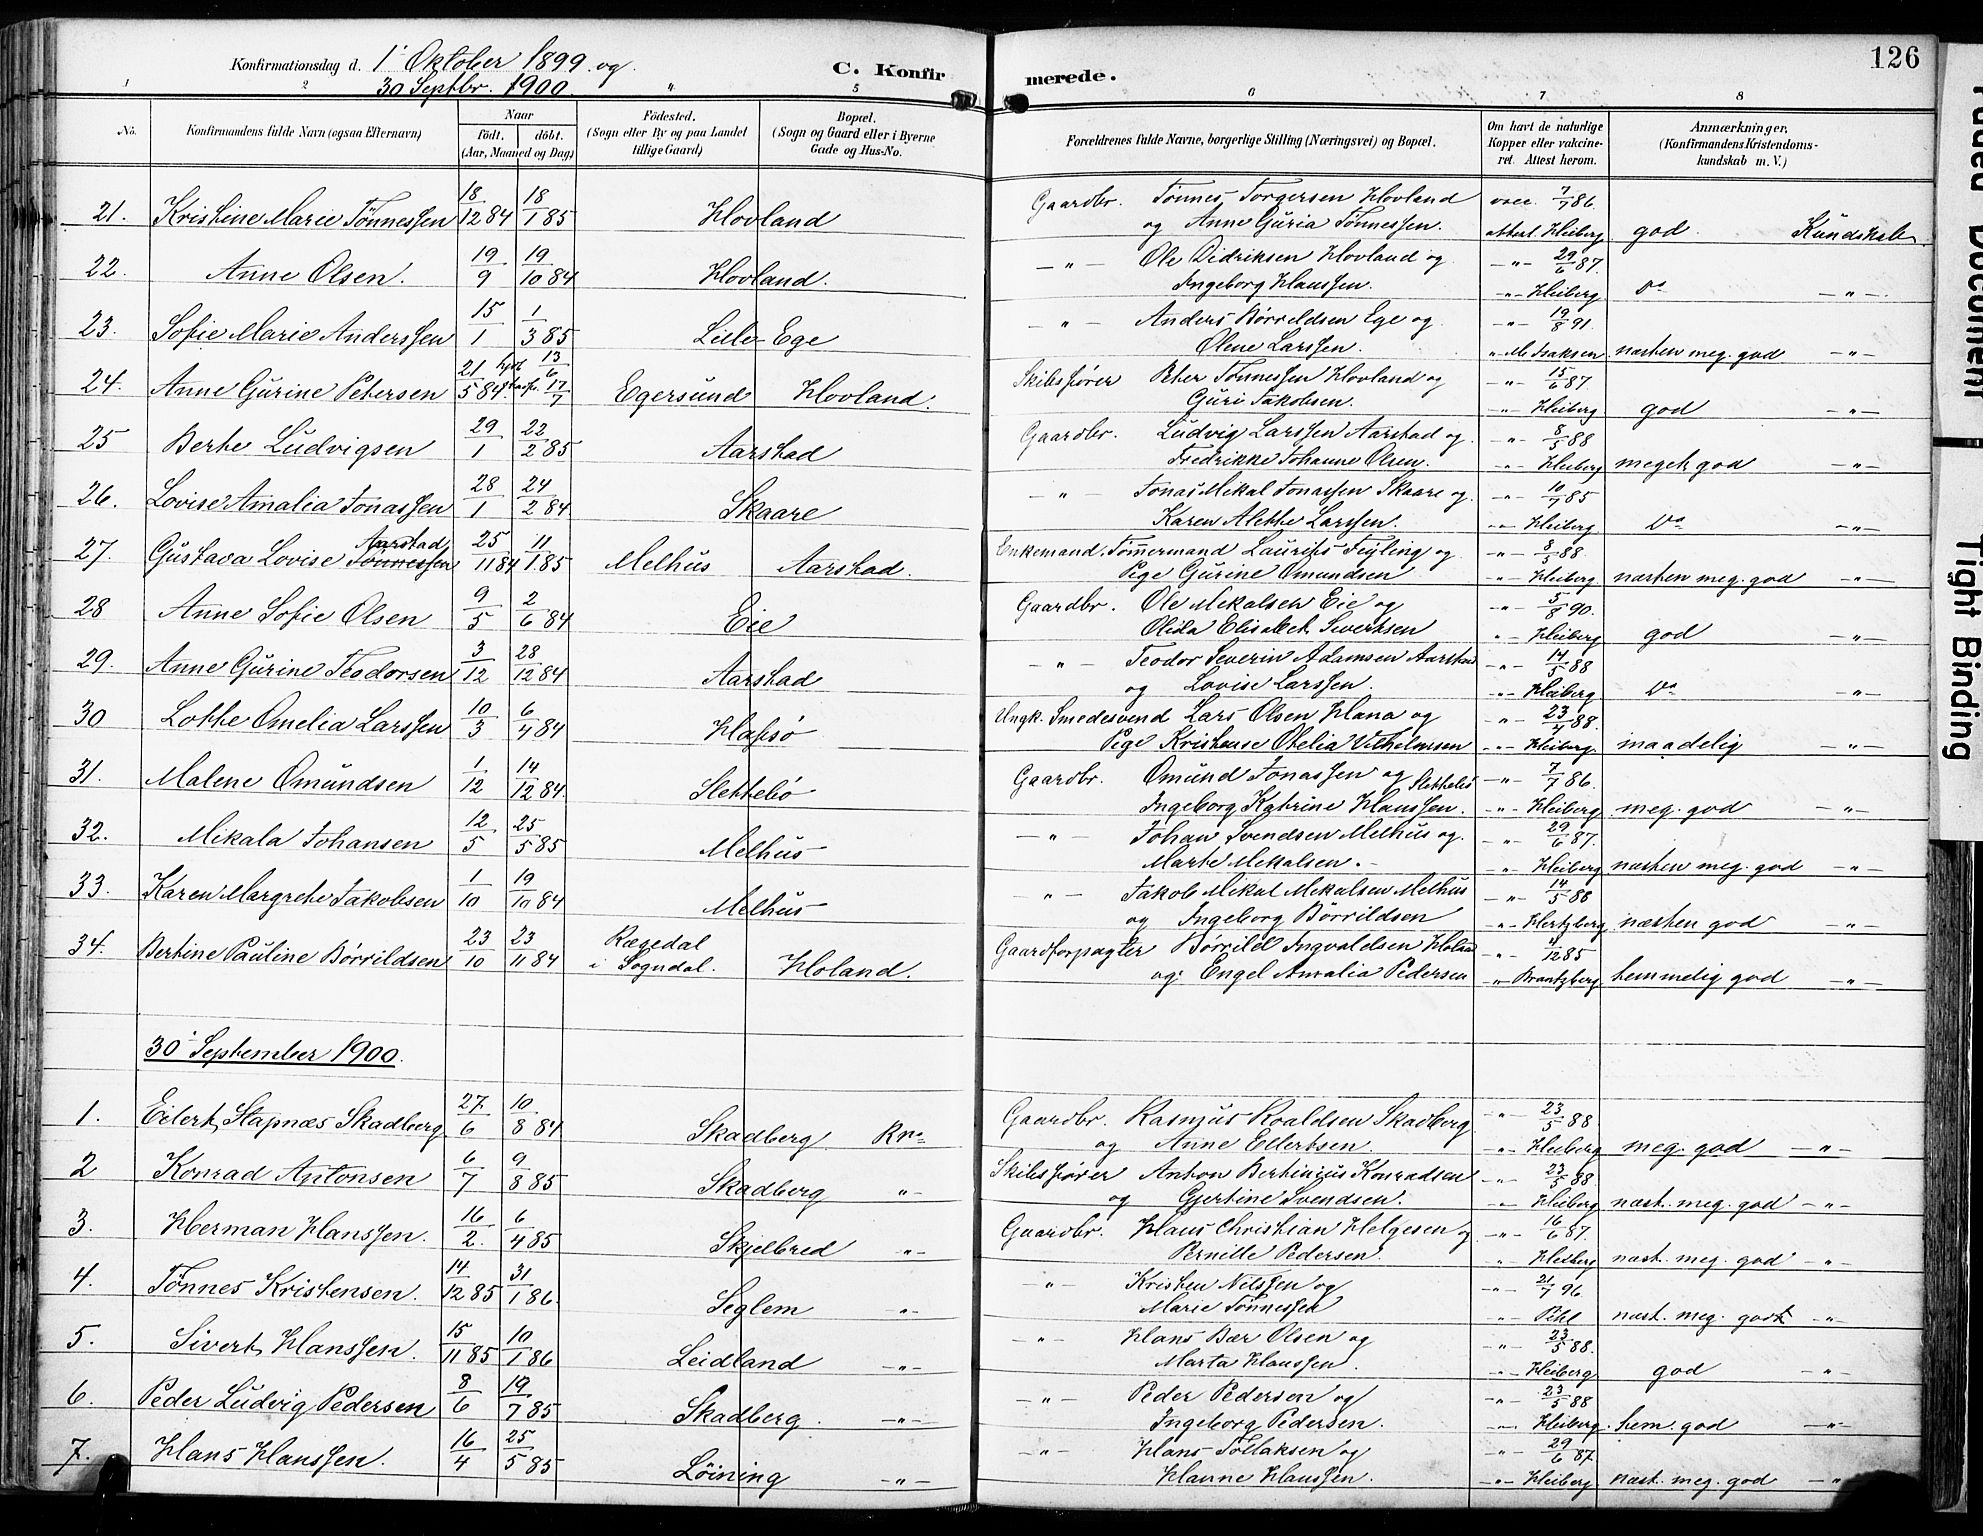 126
Konfirmationsdag d. 1' Oktober 1899 og
30 Septbr. 1900.
C. Konfirmerede.
1 2 4 5 6 7 8
No. Konfirmandens fulde Navn (ogsaa Efternavn) Naar født, døbt. (Aar, Maaned og Dag) Fødested. (Sogn eller By og paa Landet tillige Gaard) Bopæl. (Sogn og Gaard eller i Byerne Gade og Hus-No. Forældrenes fulde Navne, borgerlige Stilling (Næringsvei) og Bopæl. Om havt de naturlige Kopper eller vakcineret. Attest herom. Anmærkninger. (Konfirmandens Kristendomskundskab m. V.)
21. Kristine Marie Tønnessen 18/12 84 18/1 85 Hovland Gaardbr. Tønnes Torgersen Hovland vacc. 7/7 86.
og Anne Guria Tønnessen. Attest. Heiberg god. Kundskab
22. Anne Olsen. 19/9 19/10 84 Hovland. -„- Ole Didriksen Hovland og -„- 29/6 87.
Ingeborg Hanssen. -„- Heiberg Do -„-
23. Sofie Marie Anderssen 15/1 1/3 85 Lille-Ege -„- Anders Børrildsen Ege og -„- 19/8 91.
Olene Larssen. „ M. Isaksen næsten meg. god -„-
24. Anne Gurine Petersen 21/5 84. hjd. 13/6 17/7 Egersund Hovland. Skibsfører Peter Tønnessen Hovland og -„- 15/6 87.
Guri Jakobsen. -„- Heiberg god -„-
25 Berte Ludvigsen 29/1 22/2 85 Aarstad Gaardbr. Ludvig Larssen Aarstad og -„- 8/5 88
Fredrikke Johanne Olsen. -„- Heiberg meget god -„-
26. Lovise Amalia Jonassen 28/1 24/2 84 Skaare -„- Jonas Mikal Jonassen Skaare og -„- 10/7 85
Karen Alette Larssen. -„- Heiberg Do -„-
27. Gustava Lovise Tønnessen Aarstad 25/11 84 11/1 85 Melhus Aarstad. Enkemand. Tømmermand Laurits Feyling og -„- 8/5 88.
Pige Gurine Omundsen -„- Heiberg næsten meg. god -„-
28 Anne Sofie Olsen 9/5 2/6 84 Eie Gaardbr. Ole Mikalsen Eie og -„- 5/8 90.
Olida Elisabet Sivertsen -„- Heiberg god -„-
29. Anne Gurine Teodorsen 3/12 28/12 84 Aarstad -„- Teodor Severin Adamsen Aarstad -„- 14/5 88
og Lovise Larssen. -„- Heiberg Do -„-
30 Lotte Omelia Larssen 10/3 6/4 84 Hafsø Ungk. Smedesvend Lars Olsen Hana og -„- 23/4 88.
Pige Kristense Otelia Vilhelmsen -„- Heiberg maadelig -„-
31. Malene Omundsen 1/12 14/12 84. Slettebø Gaardbr. Omund Jonassen og Slettebø -„- 7/7 86.
Ingeborg Katrine Hanssen. -„- Heiberg meg. god -„-
32. Mikala Johansen 12/5 25/5 85 Melhus -„- Johan Svendsen Melhus og. -„- 29/6 87.
Marte Mekalsen. -„- Heiberg næsten meg. god -„-
33. Karen Margrete Jakobsen 1/10 19/10 84 Melhus -„- Jakob Mikal Mekalsen Melhus -„- 14/5 88
og Ingeborg Børrildsen -„- Hertzberg næsten god -„-
34. Bertine Pauline Børrildsen 23/10 23/11 84 Rægedal i Sogndal. Holand. Gaardforpagter Børrild Ingvaldsen Holand -„- 4/12 85
og Engel Amalia Pedersen „ Brantzberg temmelig god -„-
30' September 1900.
1. Eilert Stapnæs Skadberg 27/6 10/8 84 Skadberg. Gaardbr. Rasmus Roaldsen Skadberg -„- 23/5 88
og Anne Eilertsen. -„- Heiberg meg. god -„-
2 Konrad Antonsen 6/7 9/8 85 Skadberg „- Skibsfører Anton Bertinius Konradsen -„- 23/5 88.
og Gjertine Svendsen. -„- Heiberg næst. meg. god -„-
3. Herman Hanssen. 16/2 6/4 85 Skjelbred „- Gaardbr. Hans Christian Helgesen og -„- 16/6 87.
Pernille Pedersen. -„- Heiberg næst. meg. god -„-
4. Tønnes Kristensen. 14/12 85 31/1 86. Seglem „- -„- Kristen Nilssen og -„- 21/7 96.
Marie Tønnessen „ Pihl næst. meg. godt -„-
5. Sivert Hanssen. 15/11 85 10/1 86 Leidland -„- -„- Hans Bær Olsen og -„- 23/5 88.
Marta Hanssen. -„- Heiberg god -„-
6. Peder Ludvig Pedersen 8/6 19/7 85 Skadberg. -„- -„- Peder Pedersen og -„- 23/5 88
Ingeborg Pedersen. -„- Heiberg. tem. god -„-
7. Hans Hanssen. 16/4 25/5 85 Løining „- -„- Hans Tollaksen og -„- 29/6 87
Hanne Hanssen. -„- Heiberg næst. meg. god -„-
Faded Document
Tight Binding